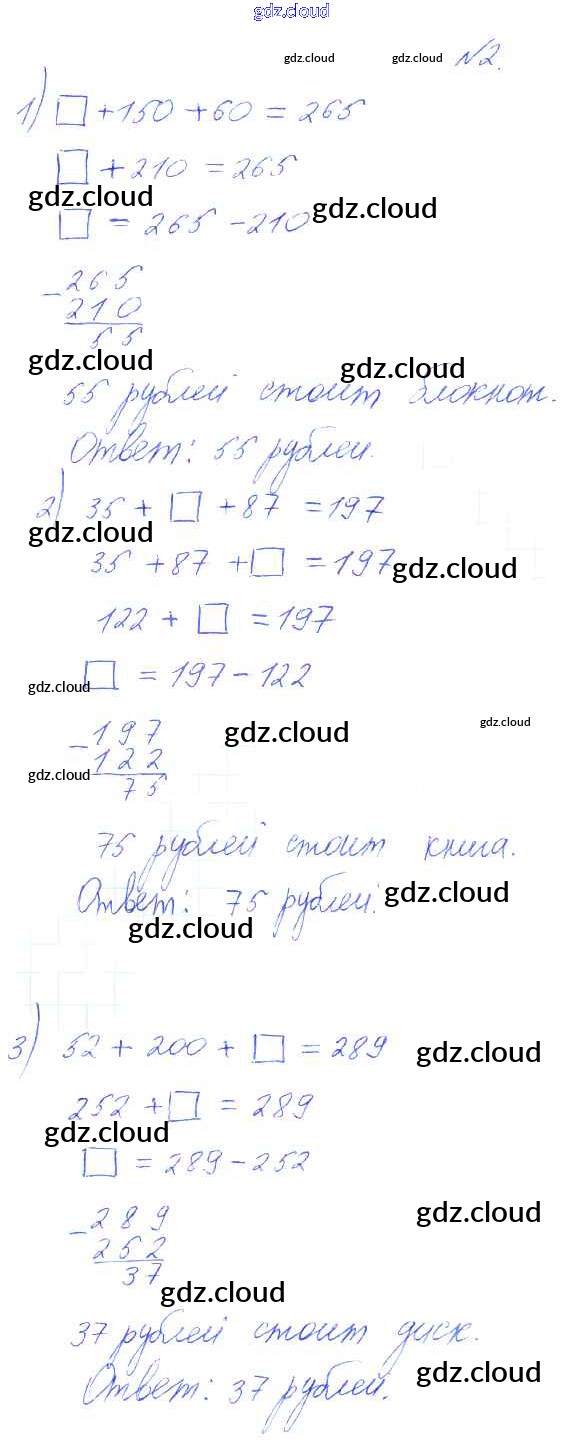 gdz.cloud
gdz.cloud gdz.cloud №2.
1) □ + 150 + 60 = 265
□ + 210 = 265
gdz.cloud gdz.cloud
□ = 265 - 210
- 265
210
55
gdz.cloud gdz.cloud
55 рублей стоит блокнот.
Ответ: 55 рублей.
2) 35 + □ + 87 = 197
gdz.cloud
35 + 87 + □ = 197
gdz.cloud
122 + □ = 197
gdz.cloud □ = 197 - 122
- 197
gdz.cloud gdz.cloud
122
gdz.cloud
75
75 рублей стоит книга.
Ответ: 75 рублей.
gdz.cloud
gdz.cloud
3) 52 + 200 + □ = 289
gdz.cloud
252 + □ = 289
gdz.cloud
□ = 289 - 252
- 289
gdz.cloud
252
37
gdz.cloud
37 рублей стоит диск.
Ответ: 37 рублей.
gdz.cloud